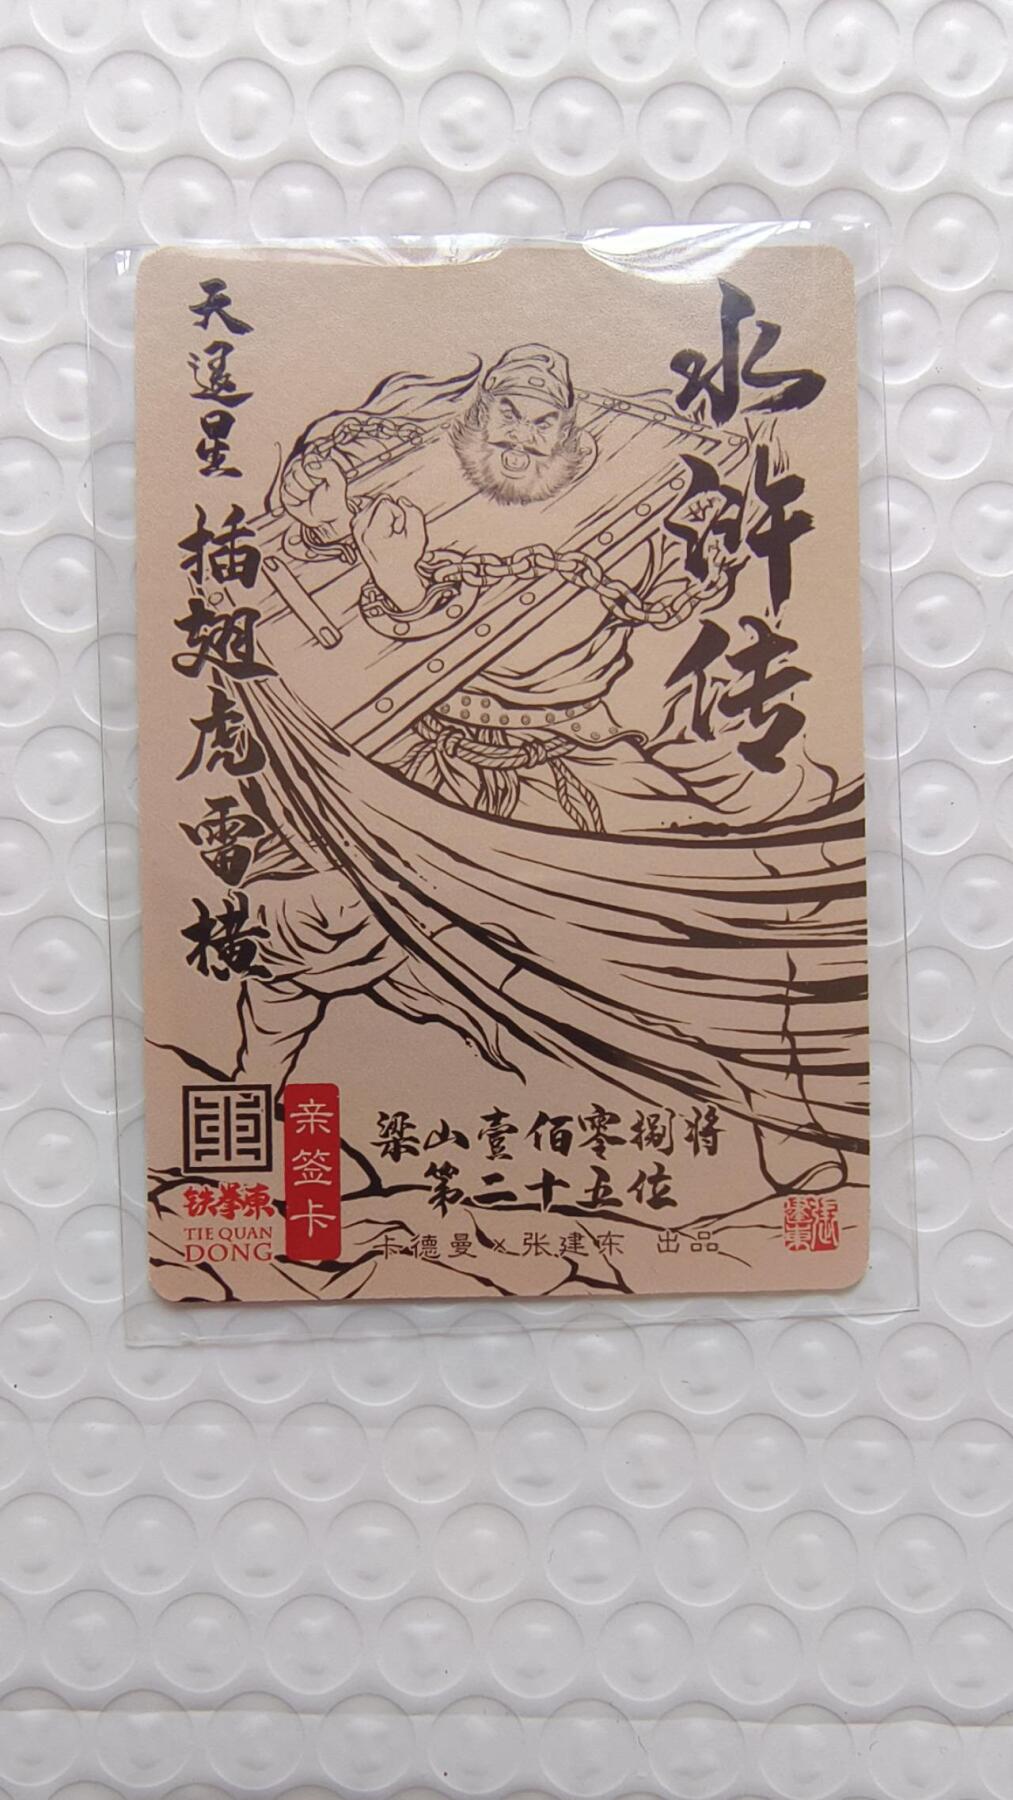 水浒传
天退星
插翅虎雷横
梁山壹佰零捌将
第二十五位
亲签卡
铁拳東
TIE QUAN
DONG
卡德曼×张建东 出品